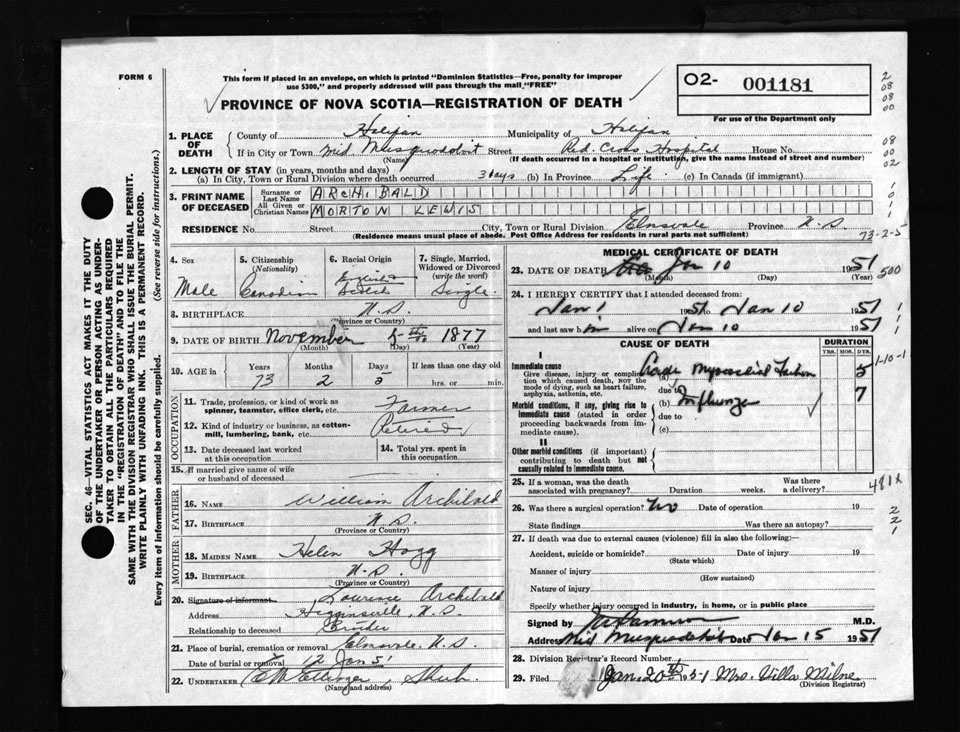 FORM 6
This form if placed in an envelope, on which is printed "Dominion Statistics—Free, penalty for improper
use $300," and properly addressed will pass through the mail "FREE"
PROVINCE OF NOVA SCOTIA—REGISTRATION OF DEATH
02- 001181
For use of the Department only
2
08
08
00
1. PLACE OF DEATH { County of Halifax Municipality of Halifax
If in City or Town Mid. Musquodoboit Street Red Cross Hospital House No.
(Name) (If death occurred in a hospital or institution, give the name instead of street and number)
08
00
02
2. LENGTH OF STAY (in years, months and days)
(a) In City, Town or Rural Division where death occurred 3 days (b) In Province Life (c) In Canada (if immigrant)
3. PRINT NAME OF DECEASED { Surname or Last Name ARCHIBALD
All Given or Christian Names MORTON LEWIS
1
0
1
1
RESIDENCE No. Street City, Town or Rural Division Elmsvale Province N.S.
(Residence means usual place of abode. Post Office Address for residents in rural parts not sufficient)
73-2-5
4. Sex
Male
5. Citizenship
(Nationality)
Canadian
6. Racial Origin
7. Single, Married,
Widowed or Divorced
(write the word)
Single
8. BIRTHPLACE N.S.
(Province or Country)
9. DATE OF BIRTH November 5th 1877
(Month) (Day) (Year)
10. AGE in { Years Months Days If less than one day
73 2 5 hrs. or min.
OCCUPATION
11. Trade, profession, or kind of work as
spinner, teamster, office clerk, etc. Farmer
12. Kind of industry or business, as cotton-
mill, lumbering, bank, etc. Retired
13. Date deceased last worked
at this occupation
14. Total yrs. spent in
this occupation
15. If married give name of wife
or husband of deceased
FATHER
16. NAME William Archibald
17. BIRTHPLACE N.S.
(Province or Country)
MOTHER
18. MAIDEN NAME Helen Hogg
19. BIRTHPLACE N.S.
(Province or Country)
20. Signature of informant Lawrence Archibald
Address Higginsville, N.S.
Relationship to deceased Brother
21. Place of burial, cremation or removal Elmsvale, N.S.
Date of burial or removal 12 Jan 51
22. UNDERTAKER
(Name and address)
MEDICAL CERTIFICATE OF DEATH
23. DATE OF DEATH Jan 10 1951
(Month) (Day)
500
24. I HEREBY CERTIFY that I attended deceased from:
Jan 1 1951 to Jan 10 1951
and last saw him alive on Jan 10 1951
1
1
1
CAUSE OF DEATH
DURATION
YRS. MOS. DYS.
I
Immediate cause
Give disease, injury or complication which caused death, not the mode of dying, such as heart failure, asphyxia, asthenia, etc.
(a) Myocardial 5
1-10-1
due to
(b) Influenza 7
Morbid conditions, if any, giving rise to immediate cause (stated in order proceeding backwards from immediate cause).
due to
(c)
II
Other morbid conditions (if important) contributing to death but not causally related to immediate cause.
25. If a woman, was the death
associated with pregnancy? Duration weeks. Was there a delivery?
481X
26. Was there a surgical operation? No Date of operation 19
State findings Was there an autopsy?
2
2
1
27. If death was due to external causes (violence) fill in also the following:
Accident, suicide or homicide? Date of injury 19
(State which)
Manner of injury
(How sustained)
Nature of injury
Specify whether injury occurred in industry, in home, or in public place
Signed by M.D.
Address Mid Musquodoboit Date Jan 15 1951
28. Division Registrar's Record Number 1
29. Filed Jan. 20th 1951 Mrs. Villa Milne
(Division Registrar)
SEC. 46—VITAL STATISTICS ACT MAKES IT THE DUTY
OF THE UNDERTAKER OR PERSON ACTING AS UNDER-
TAKER TO OBTAIN ALL THE PARTICULARS REQUIRED
IN THE "REGISTRATION OF DEATH" AND TO FILE THE
SAME WITH THE DIVISION REGISTRAR WHO SHALL ISSUE THE BURIAL PERMIT.
WRITE PLAINLY WITH UNFADING INK. THIS IS A PERMANENT RECORD.
Every item of information should be carefully supplied. (See reverse side for instructions.)